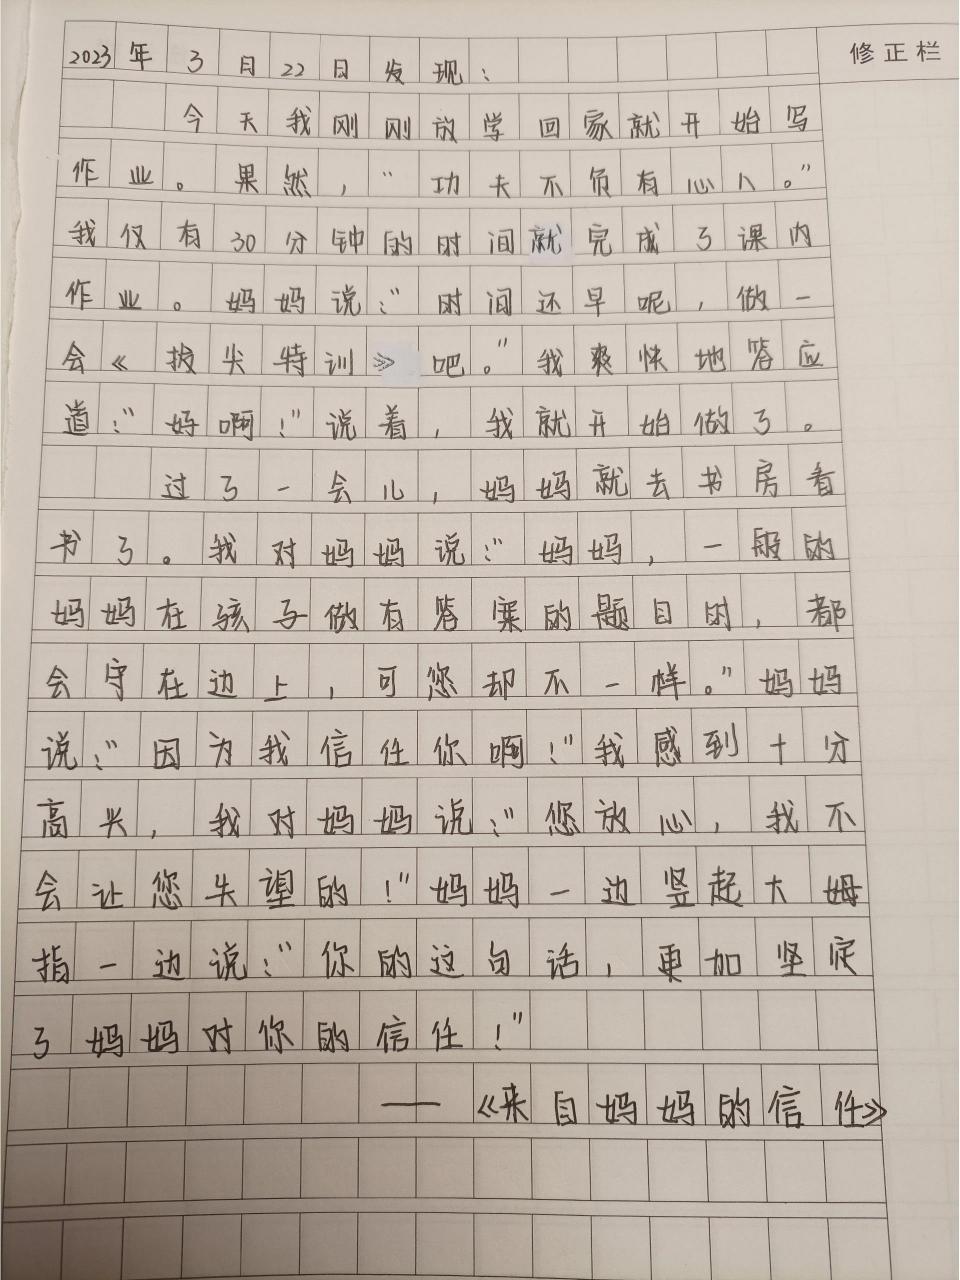 2023年3月22日发现：
修正栏
今天我刚刚放学回家就开始写
作业。果然，“功夫不负有心人。”
我仅有30分钟的时间就完成了课内
作业。妈妈说：“时间还早呢，做一
会《拔尖特训》吧。”我爽快地答应
道：“妈啊！”说着，我就开始做了。
过了一会儿，妈妈就去书房看
书了。我对妈妈说：“妈妈，一般的
妈妈在孩子做有答案的题目时，都
会守在边上，可您却不一样。”妈妈
说：“因为我信任你啊！”我感到十分
高兴，我对妈妈说：“您放心，我不
会让您失望的！”妈妈一边竖起大姆
指一边说：“你的这句话，更加坚定
了妈妈对你的信任！”
——《来自妈妈的信任》